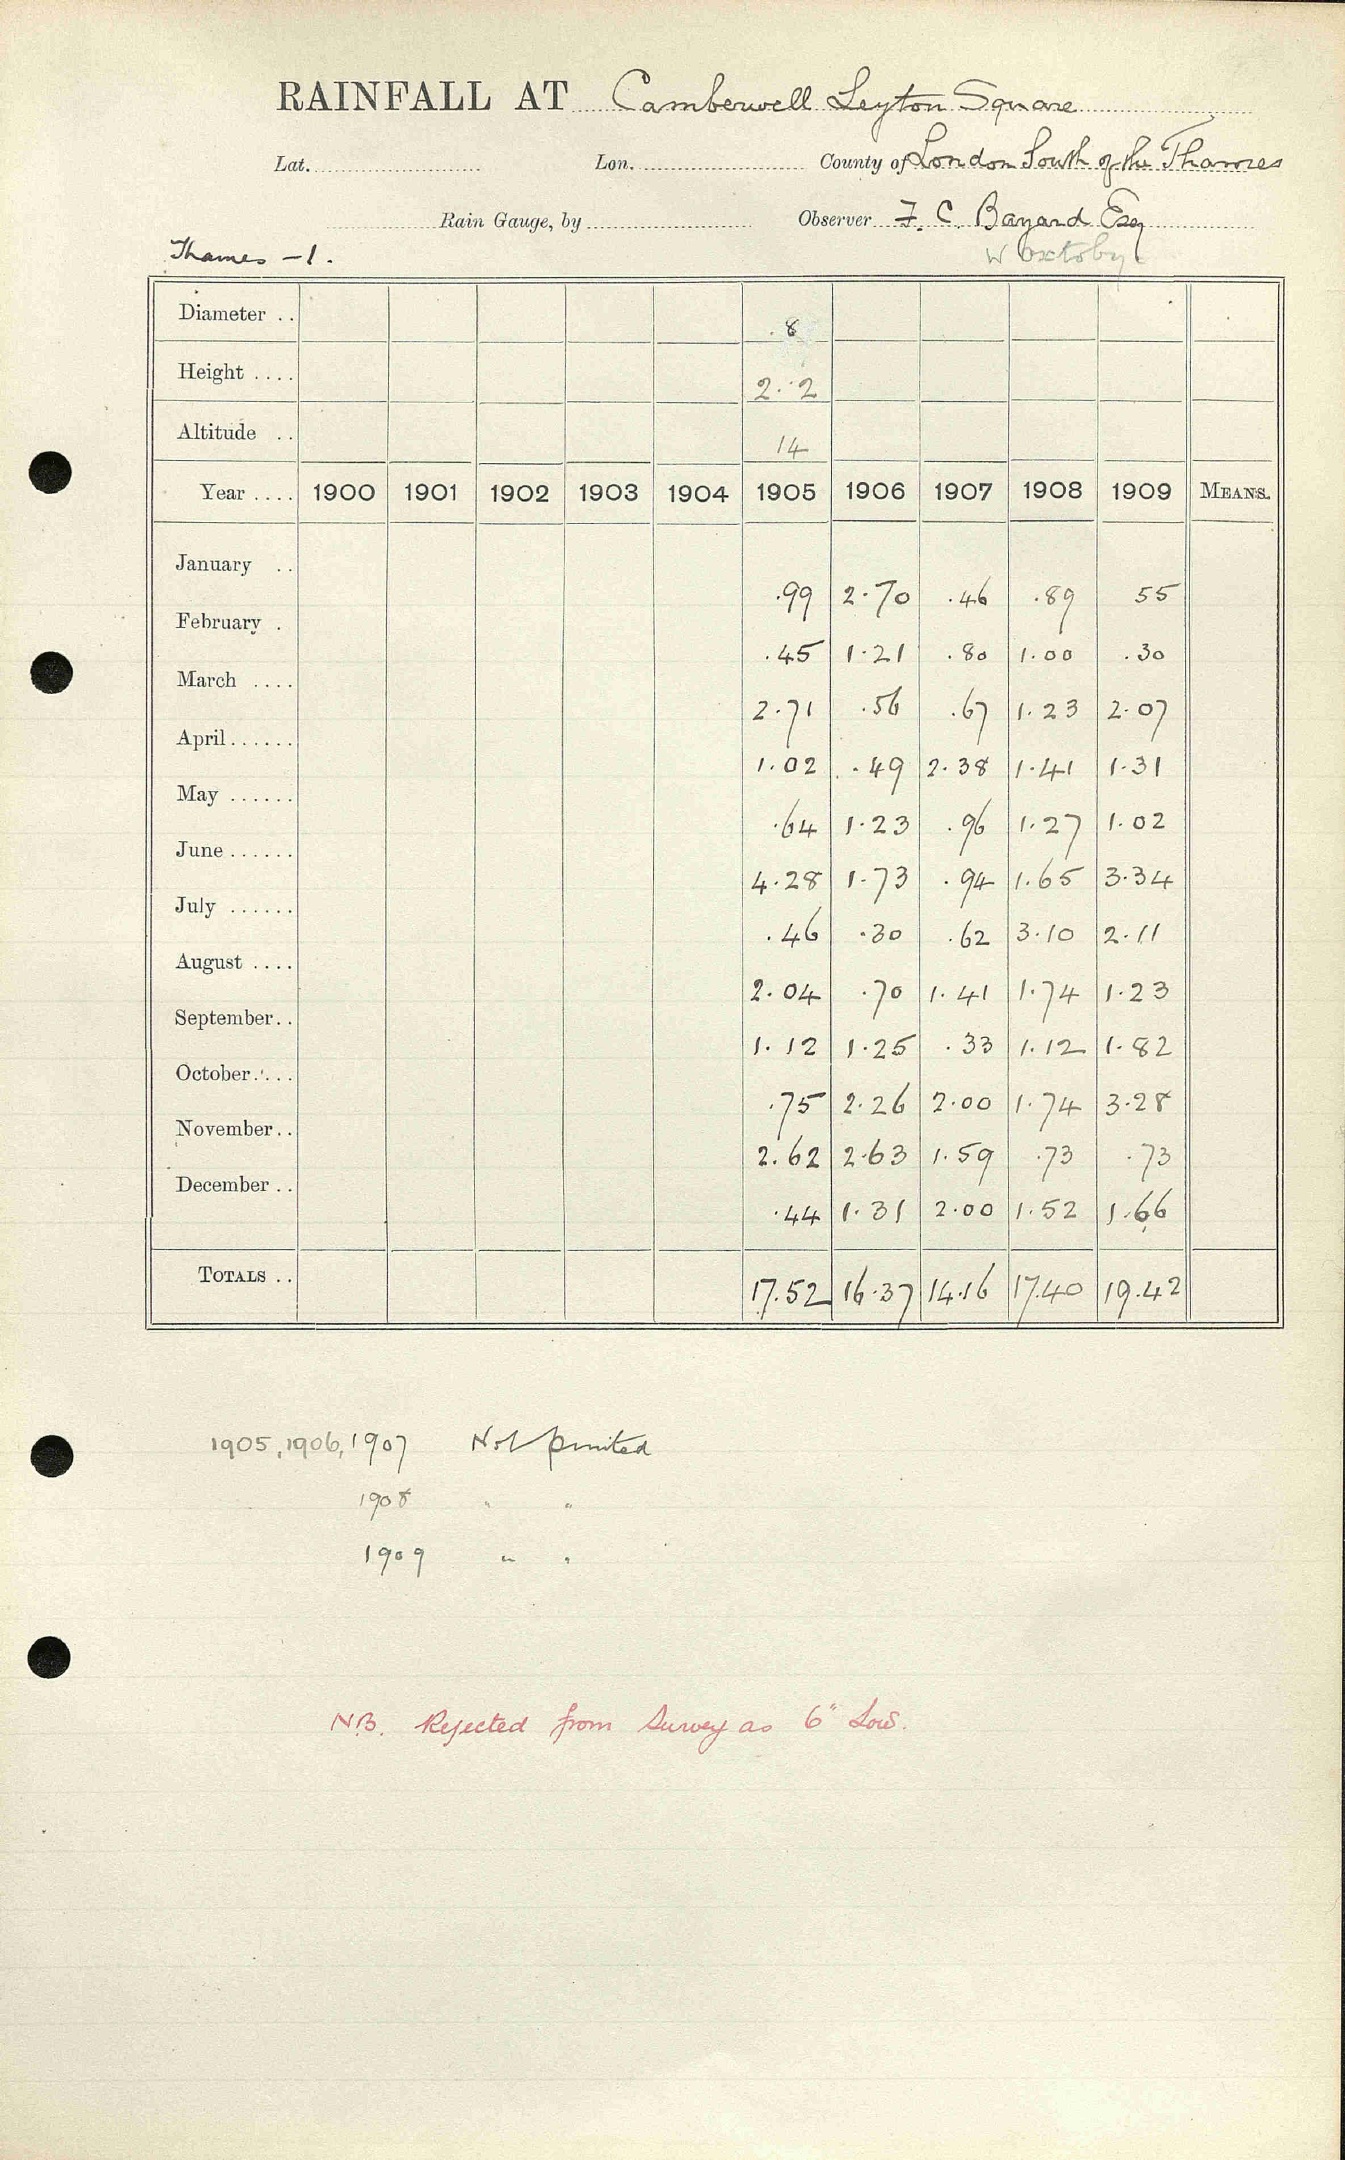 RAINFALL AT Camberwell Leyton Square
Lat. Lon. County of London South of the Thames
Rain Gauge, by Observer F. C. Bayard Esq
Thames - 1. W Oxtoby
Diameter .. 8
Height .... 2.2
Altitude .. 14
Year .... 1900 1901 1902 1903 1904 1905 1906 1907 1908 1909 MEANS.
January .. .99 2.70 .46 .89 55
February . .45 1.21 .80 1.00 .30
March .... 2.71 .56 .67 1.23 2.07
April...... 1.02 .49 2.38 1.41 1.31
May ...... .64 1.23 .96 1.27 1.02
June...... 4.28 1.73 .94 1.65 3.34
July ...... .46 .30 .62 3.10 2.11
August .... 2.04 .70 1.41 1.74 1.23
September.. 1.12 1.25 .33 1.12 1.82
October.... .75 2.26 2.00 1.74 3.28
November.. 2.62 2.63 1.59 .73 .73
December .. .44 1.31 2.00 1.52 1.66
TOTALS .. 17.52 16.37 14.16 17.40 19.42
1905, 1906, 1907 Not printed
1908 " "
1909 " "
NB. Rejected from Survey as 6" Low.